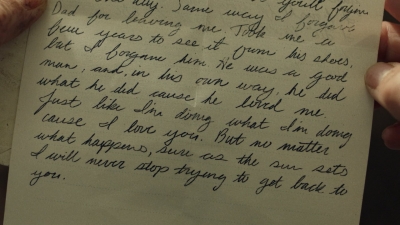 and day. Same way I forgave
Dad for leaving me. Took me a
few years to see it from his shoes,
but I forgave him. He was a good
man, and, in his own way, he did
what he did cause he loved me.
Just like I'm doing what I'm doing
cause I love you. But no matter
what happens, sure as the sun sets
I will never stop trying to get back to
you.